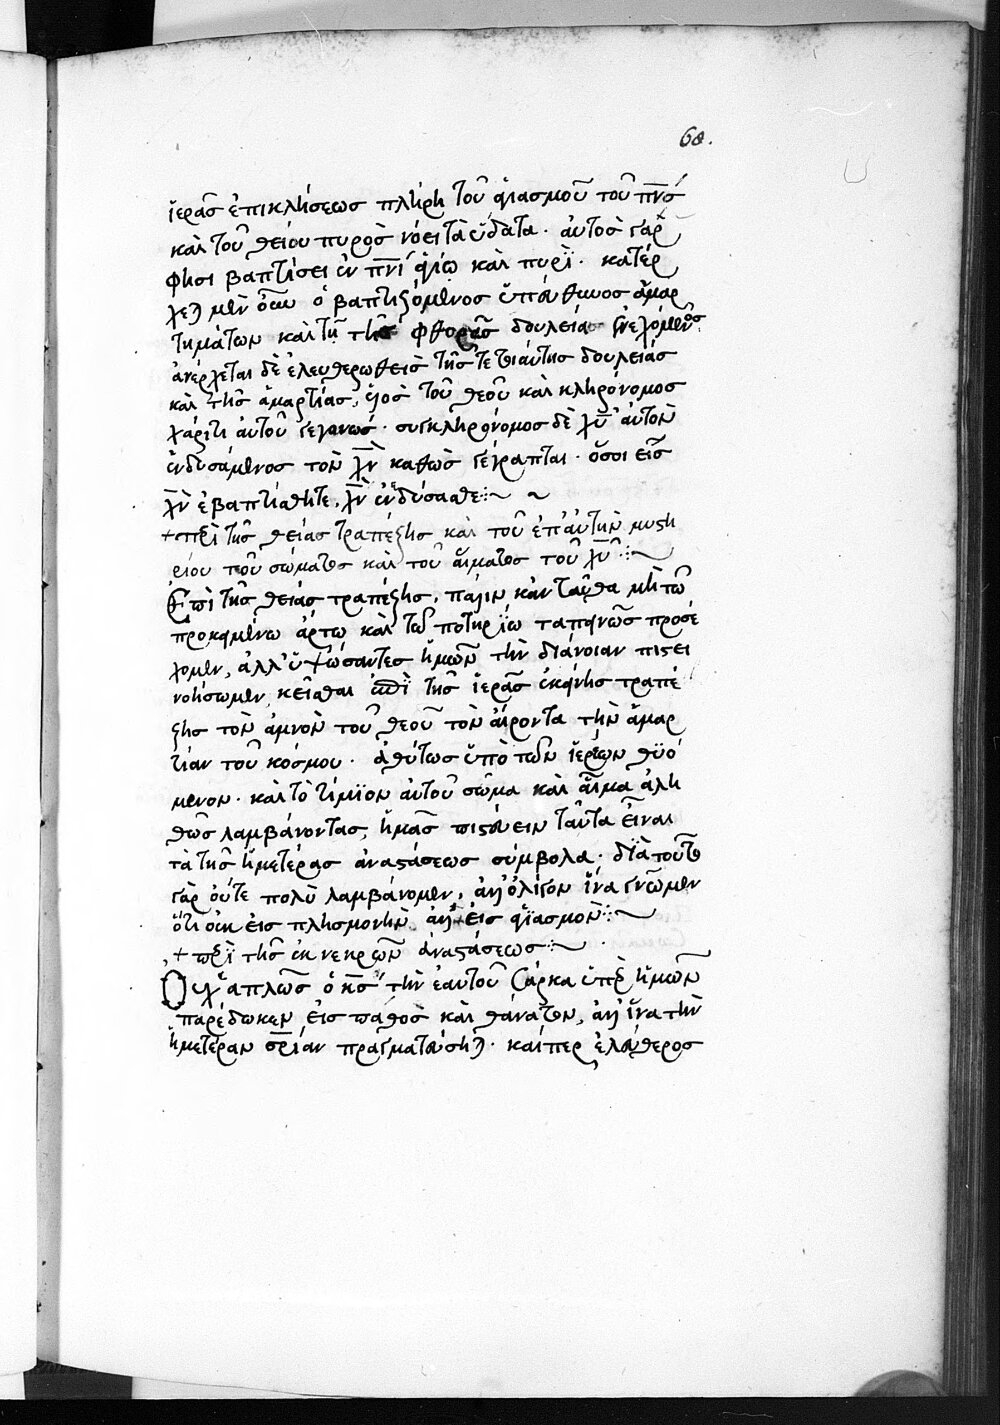 68.
ἱερᾶς ἐπικλήσεως πλήρη τοῦ ἁγιασμοῦ τοῦ πν̅ς
καὶ τοῦ θείου πυρὸς νόει τὰ ὕδατα· αὐτὸς γάρ
φησι βαπτίσει ἐν πν̅ι ἁγίω καὶ πυρί· κατέρ
χεται μὲν οὖν ὁ βαπτιζόμενος ὑπεύθυνος ἁμαρ
τημάτων καὶ τῆ τῆς φθορᾶς δουλεία ἐνεχόμενος
ἀνέρχεται δὲ ἐλευθερωθεὶς τῆς τε τοιαύτης δουλείας
καὶ τῆς ἁμαρτίας, υἱὸς τοῦ θεοῦ καὶ κληρόνομος
χάριτι αὐτοῦ γεγονώς· συγκληρόνομος δὲ χ̅υ αὐτὸν
ἐνδυσάμενος τὸν χ̅ν καθὼς γέγραπται· ὅσοι εἰς
χ̅ν ἐβαπτίσθητε, χ̅ν ἐνεδύσασθε:~ ~
+ περὶ τῆς θείας τραπέζης καὶ τοῦ ἐπ' αὐτὴν μυστη
ρίου τοῦ σώματος καὶ τοῦ αἵματος τοῦ χ̅υ:~
Ἐπὶ τῆς θείας τραπέζης, πάλιν κἀνταῦθα μὴ τῶ
προκειμένω ἄρτω καὶ τῶ ποτηρίω ταπεινῶς προσέ
χομεν, ἀλλ' ὑψώσαντες ἡμῶν τὴν διάνοιαν πίστει
νοήσωμεν, κεῖσθαι ἐπὶ τῆς ἱερᾶς ἐκείνης τραπέ
ζης τὸν ἀμνὸν τοῦ θεοῦ τὸν αἴροντα τὴν ἁμαρ
τίαν τοῦ κόσμου· ἀθύτως ὑπὸ τῶν ἱερέων θυό
μενον· καὶ τὸ τίμιον αὐτοῦ σῶμα καὶ αἷμα ἀλη
θῶς λαμβάνοντας, ἡμᾶς πιστεύειν ταῦτα εἶναι
τὰ τῆς ἡμετέρας ἀναστάσεως σύμβολα· διὰ τοῦτο
γὰρ οὔτε πολὺ λαμβάνομεν, ἀλλ' ὀλίγον ἵνα γνῶμεν
ὅτι οὐκ εἰς πλησμονὴν ἀλλ' εἰς ἁγιασμόν:~
+ περὶ τῆς ἐκ νεκρῶν ἀναστάσεως:~
Οὐχ ἁπλῶς ὁ κ̅ς τὴν ἑαυτοῦ σάρκα ὑπὲρ ἡμῶν
παρέδωκεν εἰς πάθος καὶ θάνατον, ἀλλ' ἵνα τὴν
ἡμετέραν σ̅ρίαν πραγματεύσηται· καίπερ ἐλεύθερος